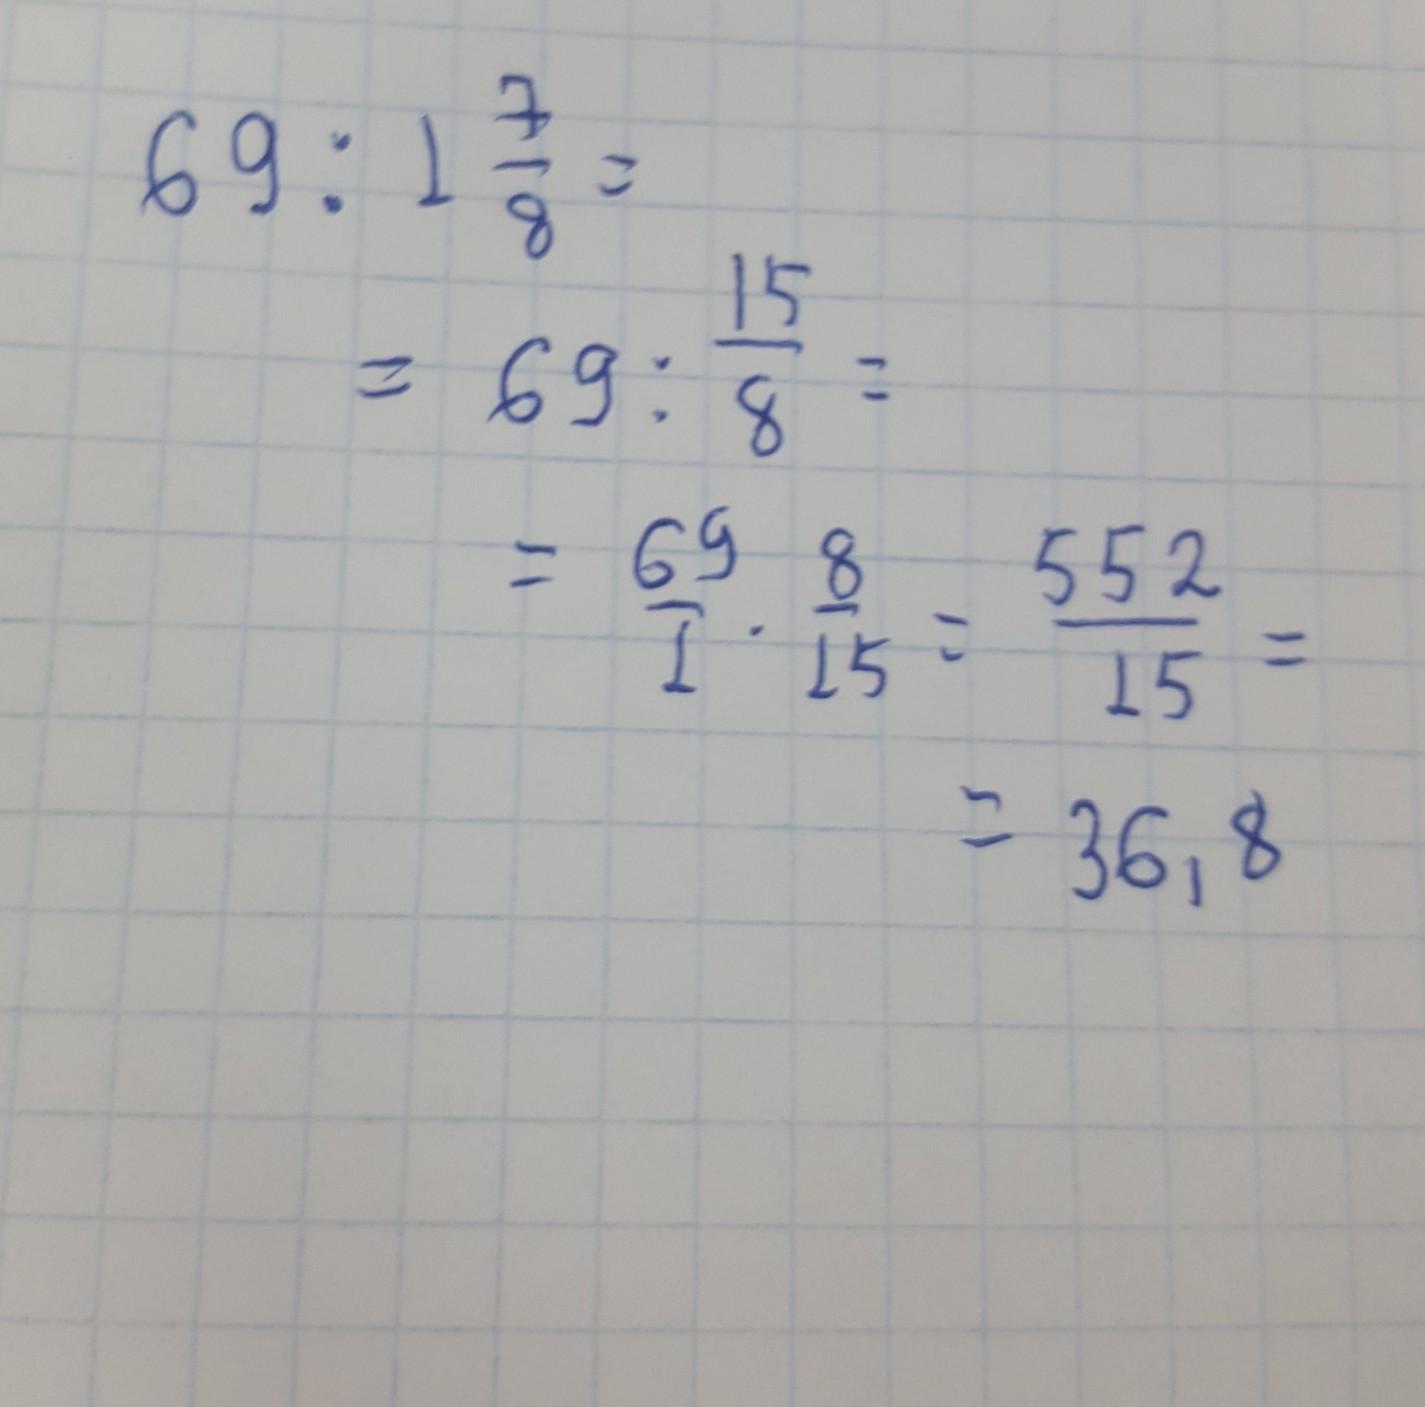 69 : 1 7/8 =
= 69 : 15/8 =
= 69/1 · 8/15 = 552/15 =
= 36,8